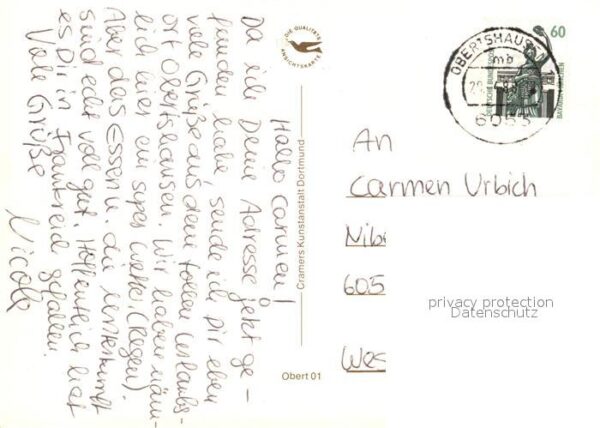 Hallo Carmen!
Da ich Deine Adresse jetzt ge-
funden habe, sende ich Dir eben
viele Grüße aus dem tollen Urlaubs-
ort Obertshausen. Wir haben näm-
lich hier ein super Wetter (Regen).
Aber das Essen u. die Unterkunft
sind echt voll gut. Hoffentlich hat
es Dir in Frankreich gefallen.
Viele Grüße
Nicole
DIE QUALITÄTS
ANSICHTSKARTE
Cramers Kunstanstalt Dortmund
Obert 01
OBERTSHAUSEN
mb
6053
60
DEUTSCHE BUNDESPOST
BAVARIA MÜNCHEN
An
Carmen Urbich
Nib
605
Wes
privacy protection
Datenschutz